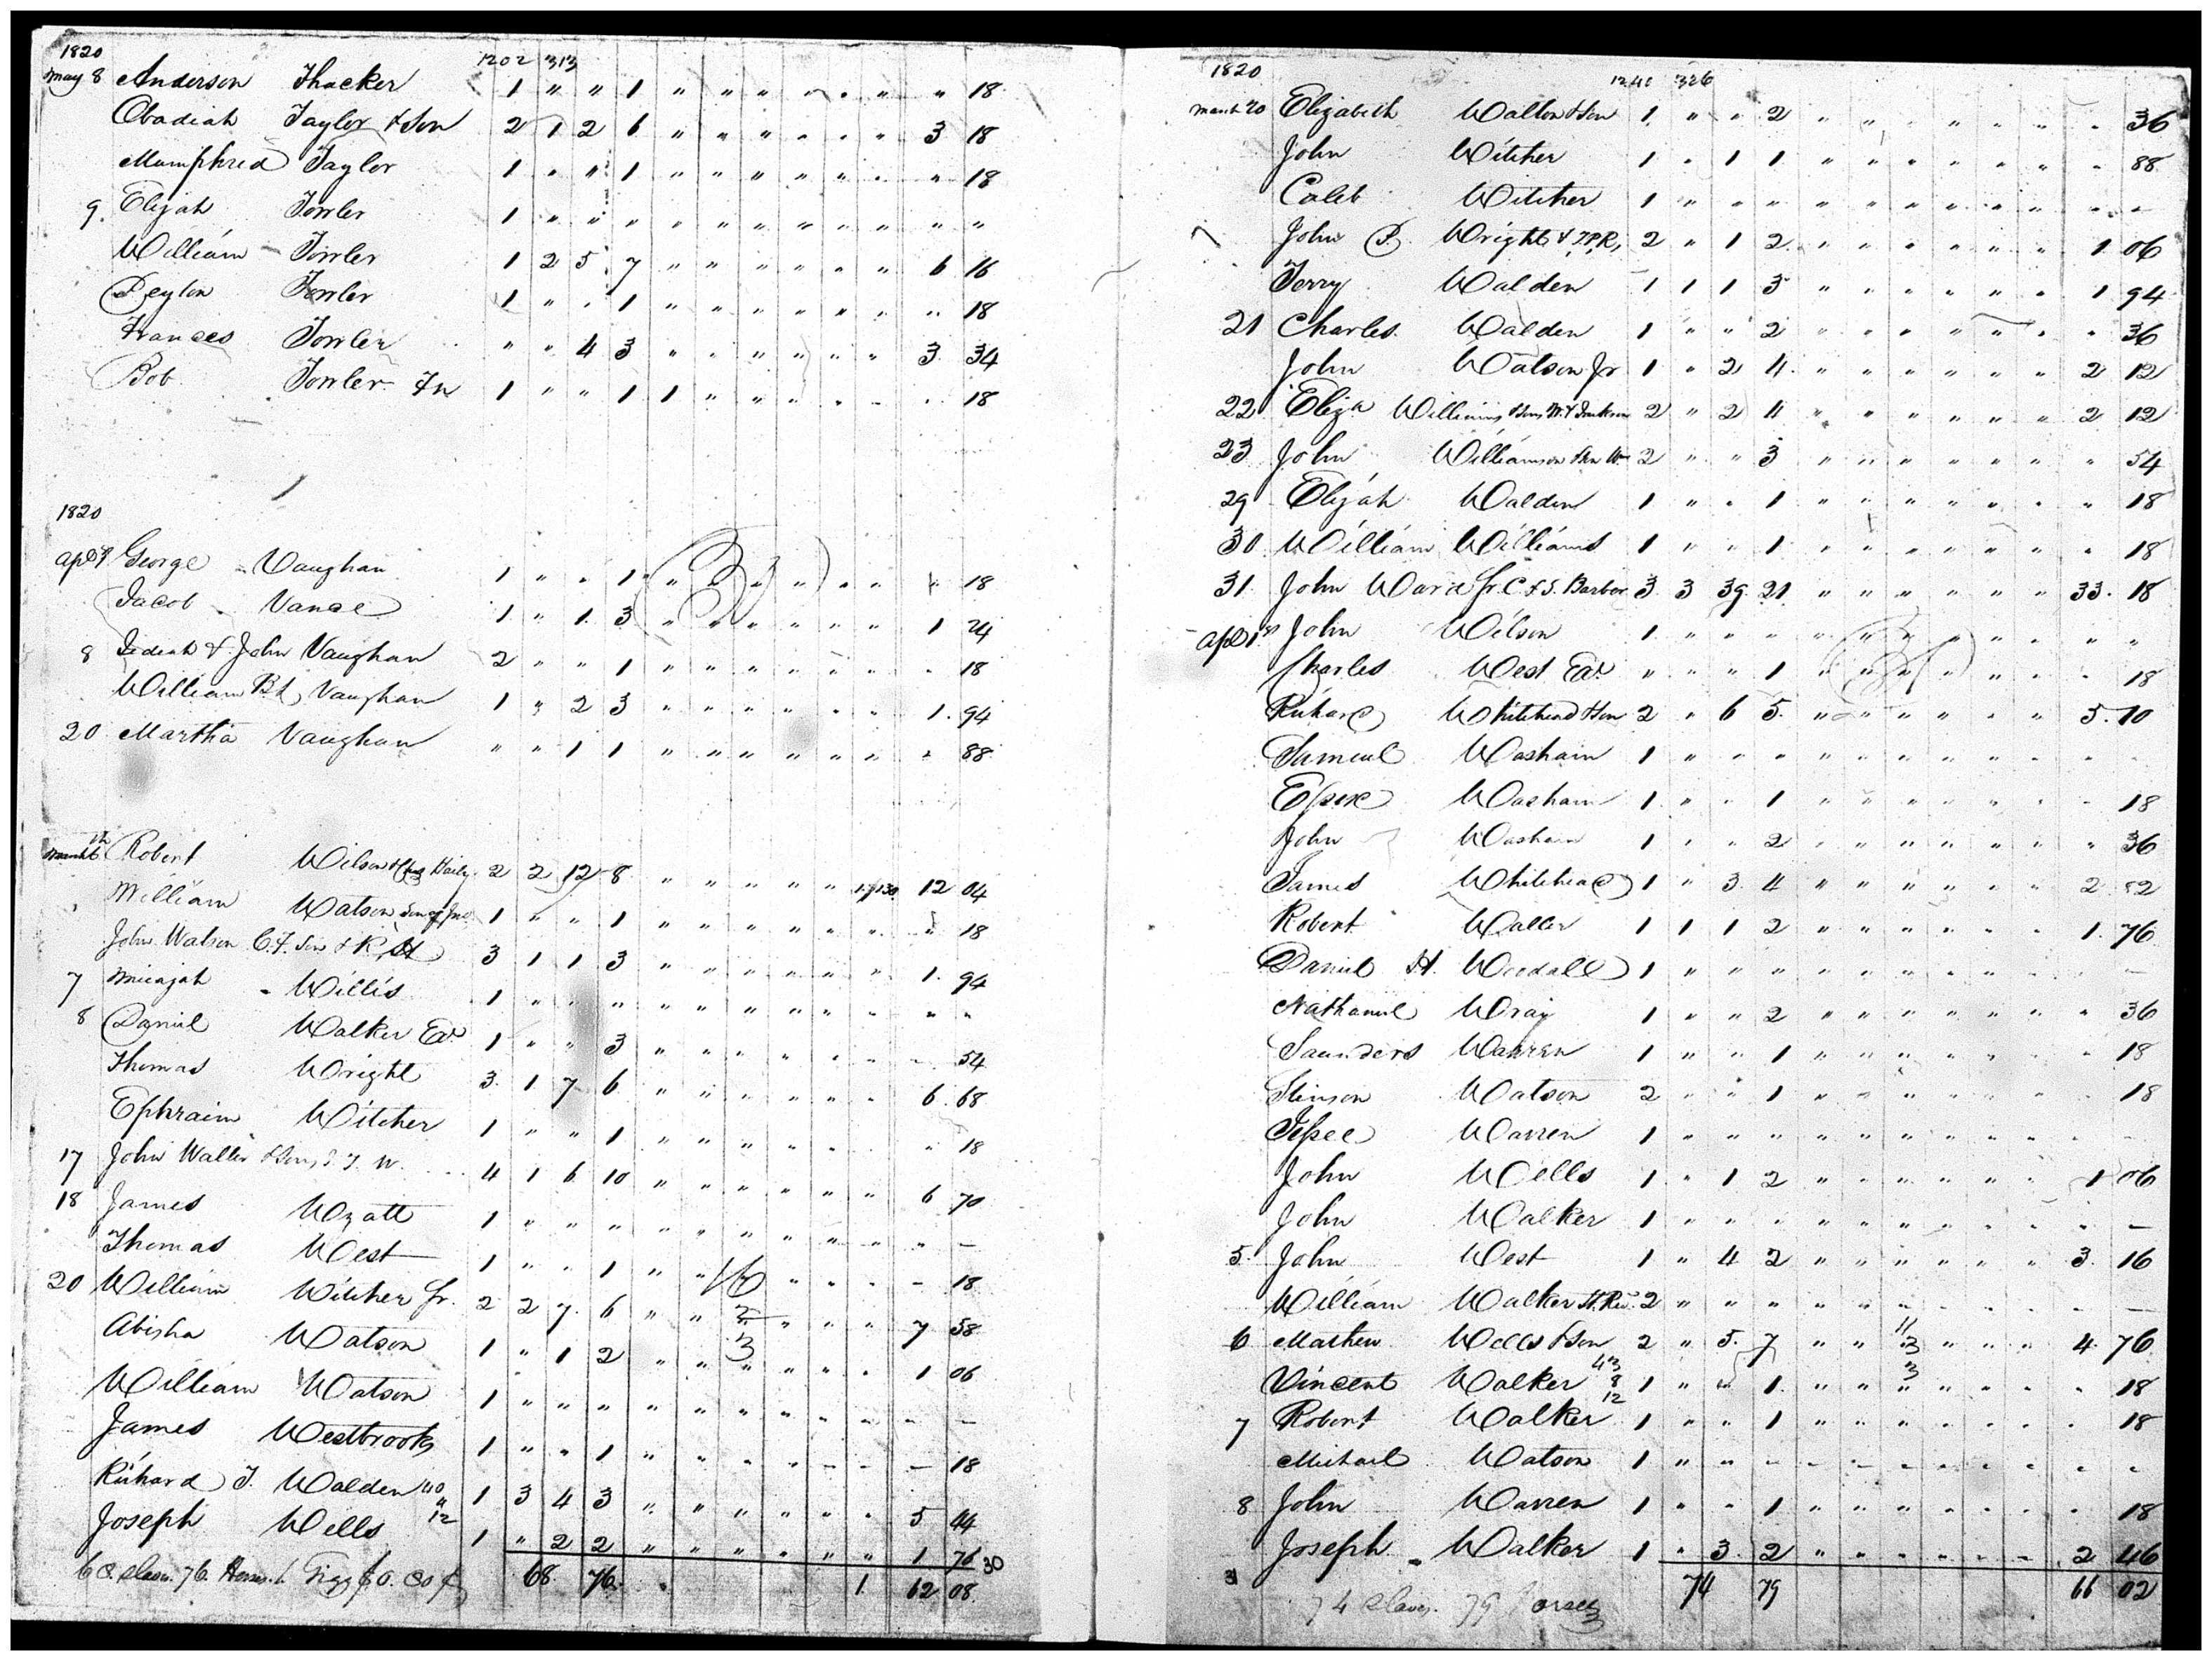 1820 1202 313
May 8 Anderson Thacker 1 " " 1 " " " " " " " " 18
Obadiah Taylor & Son 2 1 2 6 " " " " " " " 3 18
Mumphred Taylor 1 " " 1 " " " " " " " " 18
9 Elijah Towler 1 " " " " " " " " " " " "
William Towler 1 2 5 7 " " " " " " " 6 16
Peyton Towler 1 " " 1 " " " " " " " " 18
Frances Towler " " 4 3 " " " " " " " 3 34
Bob Towler Fn 1 " " 1 1 " " " " " " " 18
1820
Apl George Vaughan 1 " " 1 " " " " " " " " 18
Jacob Vance 1 " 1 3 " " " " " " " 1 24
8 & John Vaughan 2 " " 1 " " " " " " " " 18
William Vaughan 1 " 2 3 " " " " " " " 1 94
20 Martha Vaughan " " 1 1 " " " " " " " " 88
March 6th Robert Wilson & Haily 2 2 12 8 " " " " " " 12 04
William Watson Son of Jno 1 " " 1 " " " " " " " " 18
John Watson C. F. Son & R H 3 1 1 3 " " " " " " " 1 94
7 Micajah Willis 1 " " " " " " " " " " " "
8 Daniel Walker Ex 1 " " 3 " " " " " " " - 54
Thomas Wright 3 1 7 6 " " " " " " " 6 68
Ephraim Witcher 1 " " 1 " " " " " " " " 18
17 John Waller & Son 4 1 6 10 " " " " " " " 6 70
18 James Wyatt 1 " " " " " " " " " " " -
Thomas West 1 " " 1 " " " " " " - 18
20 William Witcher Sr. 2 2 7 6 " " " " " " " 7 58
Abisha Watson 1 " 1 2 " " " " " " " 1 06
William Watson 1 " " " " " " " " " " - -
James Westbrooks 1 " " 1 " " " " - - - - 18
Richard T. Walden 40 1 3 4 3 " " " " " " " 5 44
Joseph Wells 12 1 " 2 2 " " " " " " " 1 76 30
68 Slaves. 76. Horses. 1 Gigg 68 76 1 62 08
1820 326
March 20 Elizabeth Walton & Son 1 " " 2 " " " " " " " " 36
John Witcher 1 " 1 1 " " " " " " " " 88
Caleb Witcher 1 " " " " " " " " " " - -
John P. Wright & 2 " 1 2 " " " " " " " 1 06
Terry Walden 1 1 1 3 " " " " " " " 1 94
21 Charles Walden 1 " " 2 " " " " " " " " 36
John Watson Jr 1 " 2 4 " " " " " " " 2 12
22 Eliza Williams & Sons 2 " 2 4 " " " " " " " 2 12
23 John Williamson Son Wm 2 " " 3 " " " " " " " " 54
29 Elijah Walden 1 " " 1 " " " " " " " " 18
30 William Williams 1 " " 1 " " " " " " " " 18
31 John Ward Sr. C & S. Barber 3 3 39 21 " " " " " " " 33 18
Apl 1st John Wilson 1 " " " " " " " " " " " "
Charles West Ex " " " 1 " " " " " " " " 18
Richard Whitehead & Son 2 " 6 5 " " " " " " " 5 10
Samuel Washam 1 " " " " " " " " " " " "
Washam 1 " " 1 " " " " " " " - 18
John Washam 1 " " 2 " " " " " " " " 36
James Whitehead 1 " 3 4 " " " " " " " 2 82
Robert Waller 1 1 1 2 " " " " " " " 1 76
Daniel H. Woodall 1 " " " " " " " " " " - -
Nathaniel Wray 1 " " 2 " " " " " " " " 36
Saunders Warren 1 " " 1 " " " " " " " " 18
Stinson Watson 2 " " 1 " " " " " " " " 18
Jessee Warren 1 " " " " " " " " " " - -
John Wells 1 " 1 2 " " " " " " " 1 06
John Walker 1 " " " " " " " " " " " -
5 John West 1 " 4 2 " " " " " " " 3 16
William Walker 2 " " " " " " " " " " " -
6 Mathew Wells & Son 2 " 5 7 " " " " " " " 4 76
Vincent Walker 1 " " 1 " " " " " " " " 18
7 Robert Walker 1 " " 1 " " " " " " " " 18
Michael Watson 1 " " - - - - - - - - - -
8 John Warren 1 " " 1 " " " " " " " " 18
Joseph Walker 1 " 3 2 " " " " - - - 2 46
74 Slaves. 79 Horses 74 79 66 02